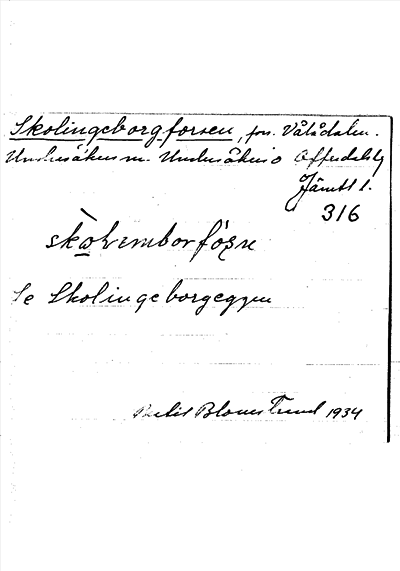 Skolingeborgforsen, fors. Vålådalen.
Undersåkers sn. Undersåkers o Offerdals tg
Jämtl l.
316
Se Skolingeborgeggen
Blomstrand 1934